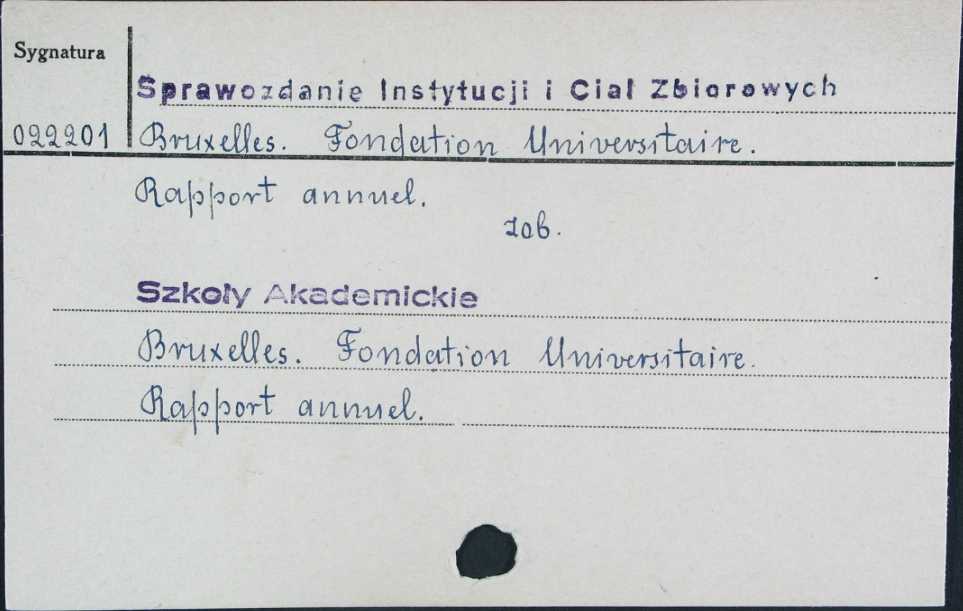 Sygnatura
Sprawozdanie Instytucji i Ciał Zbiorowych
022201 Bruxelles. Fondation Universitaire.
Rapport annuel.
zob.
Szkoły Akademickie
Bruxelles. Fondation Universitaire.
Rapport annuel.